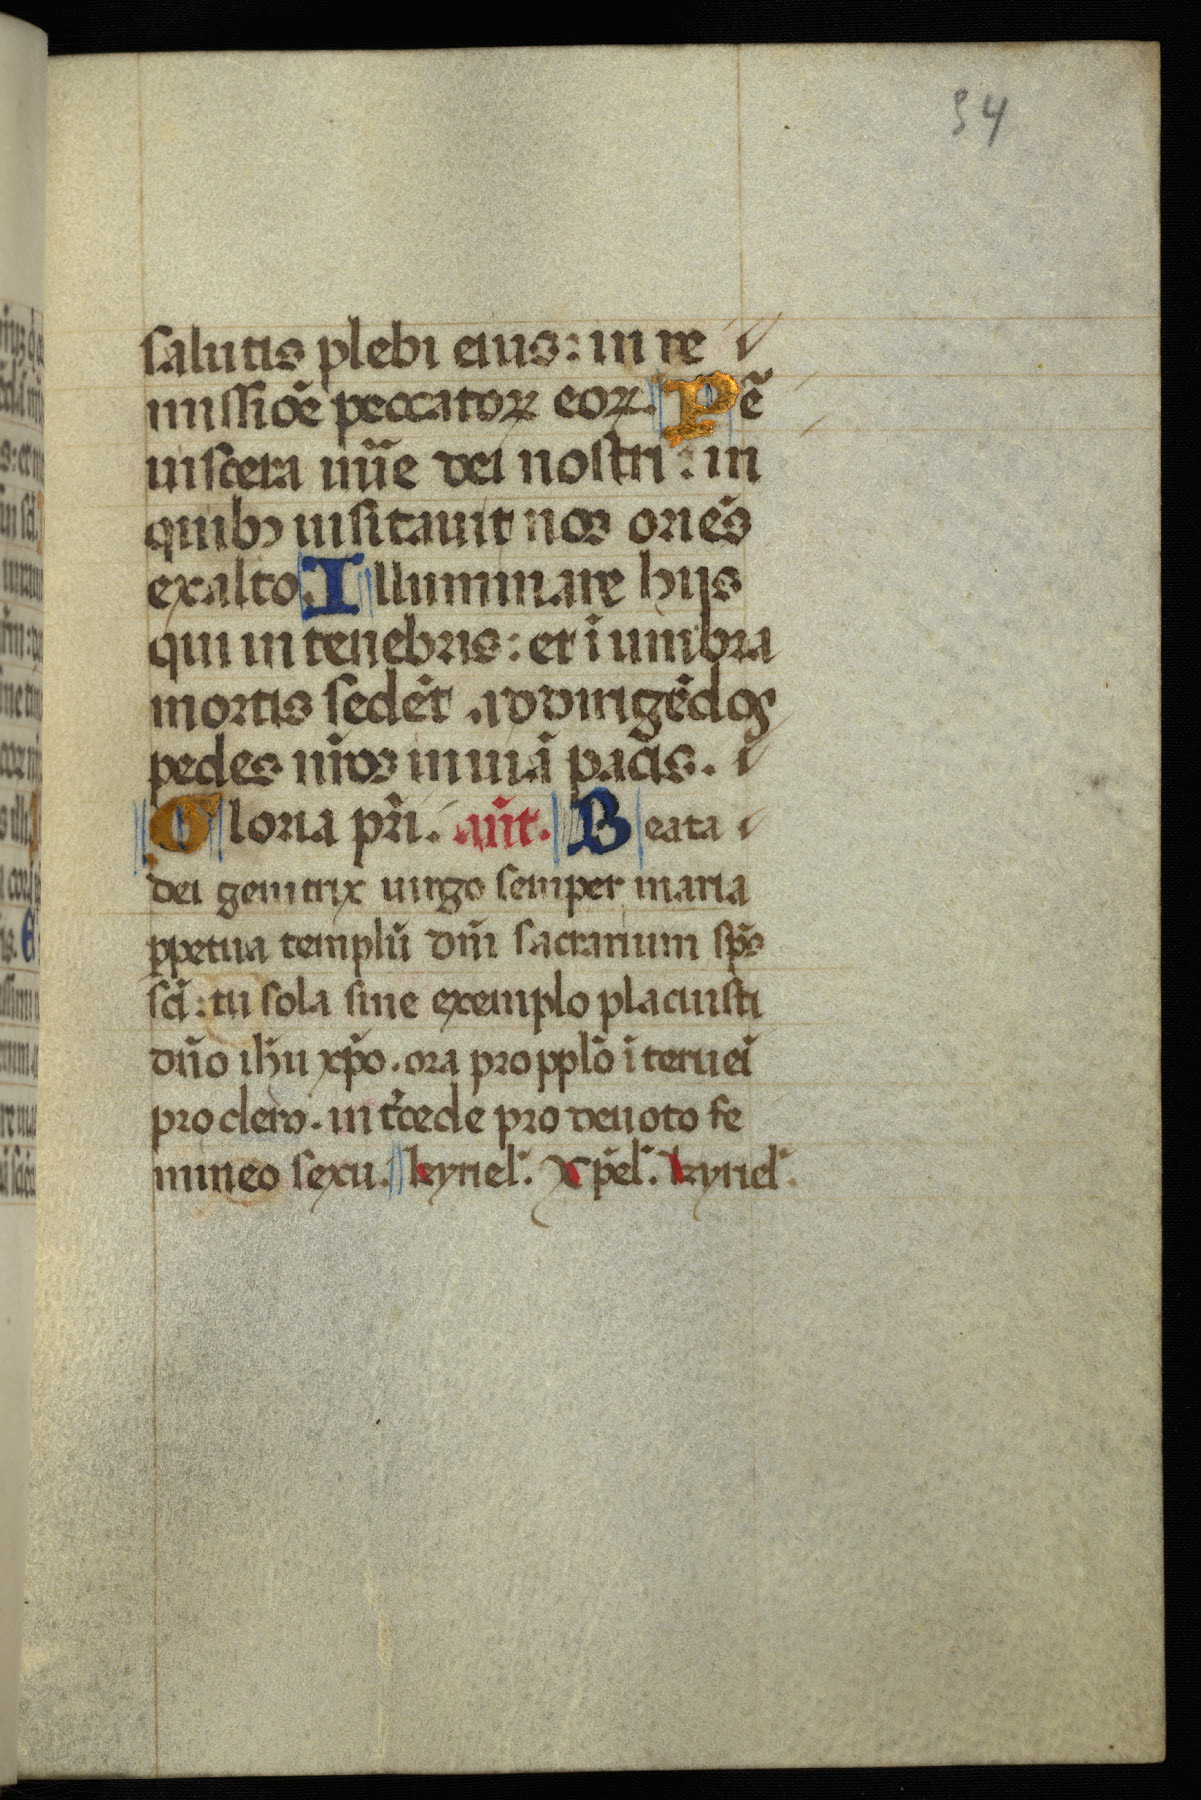 34
salutis plebi eius: in re
missiōe peccatoꝝ eoꝝ. Pē
uiscera mīe dei nostri: in
quibꝫ uisitauit nos oriēs
exalto. Illuminare hijs
qui in tenebris: et ī umbra
mortis sedēt. ad dirigēdos
pedes nr̄os in uiā pacis.
Gloria pr̄i. an̄t. Beata
dei genitrix uirgo semper maria
ꝑpetua templū dn̄i sacrarium sp̄s
sc̄i: tu sola sine exemplo placuisti
dn̄o ihū xp̄o. ora pro ppl̄o īterueī
pro clero. int̄cede pro deuoto fe
mineo sexu. kyriel. Xp̄el. kyriel.